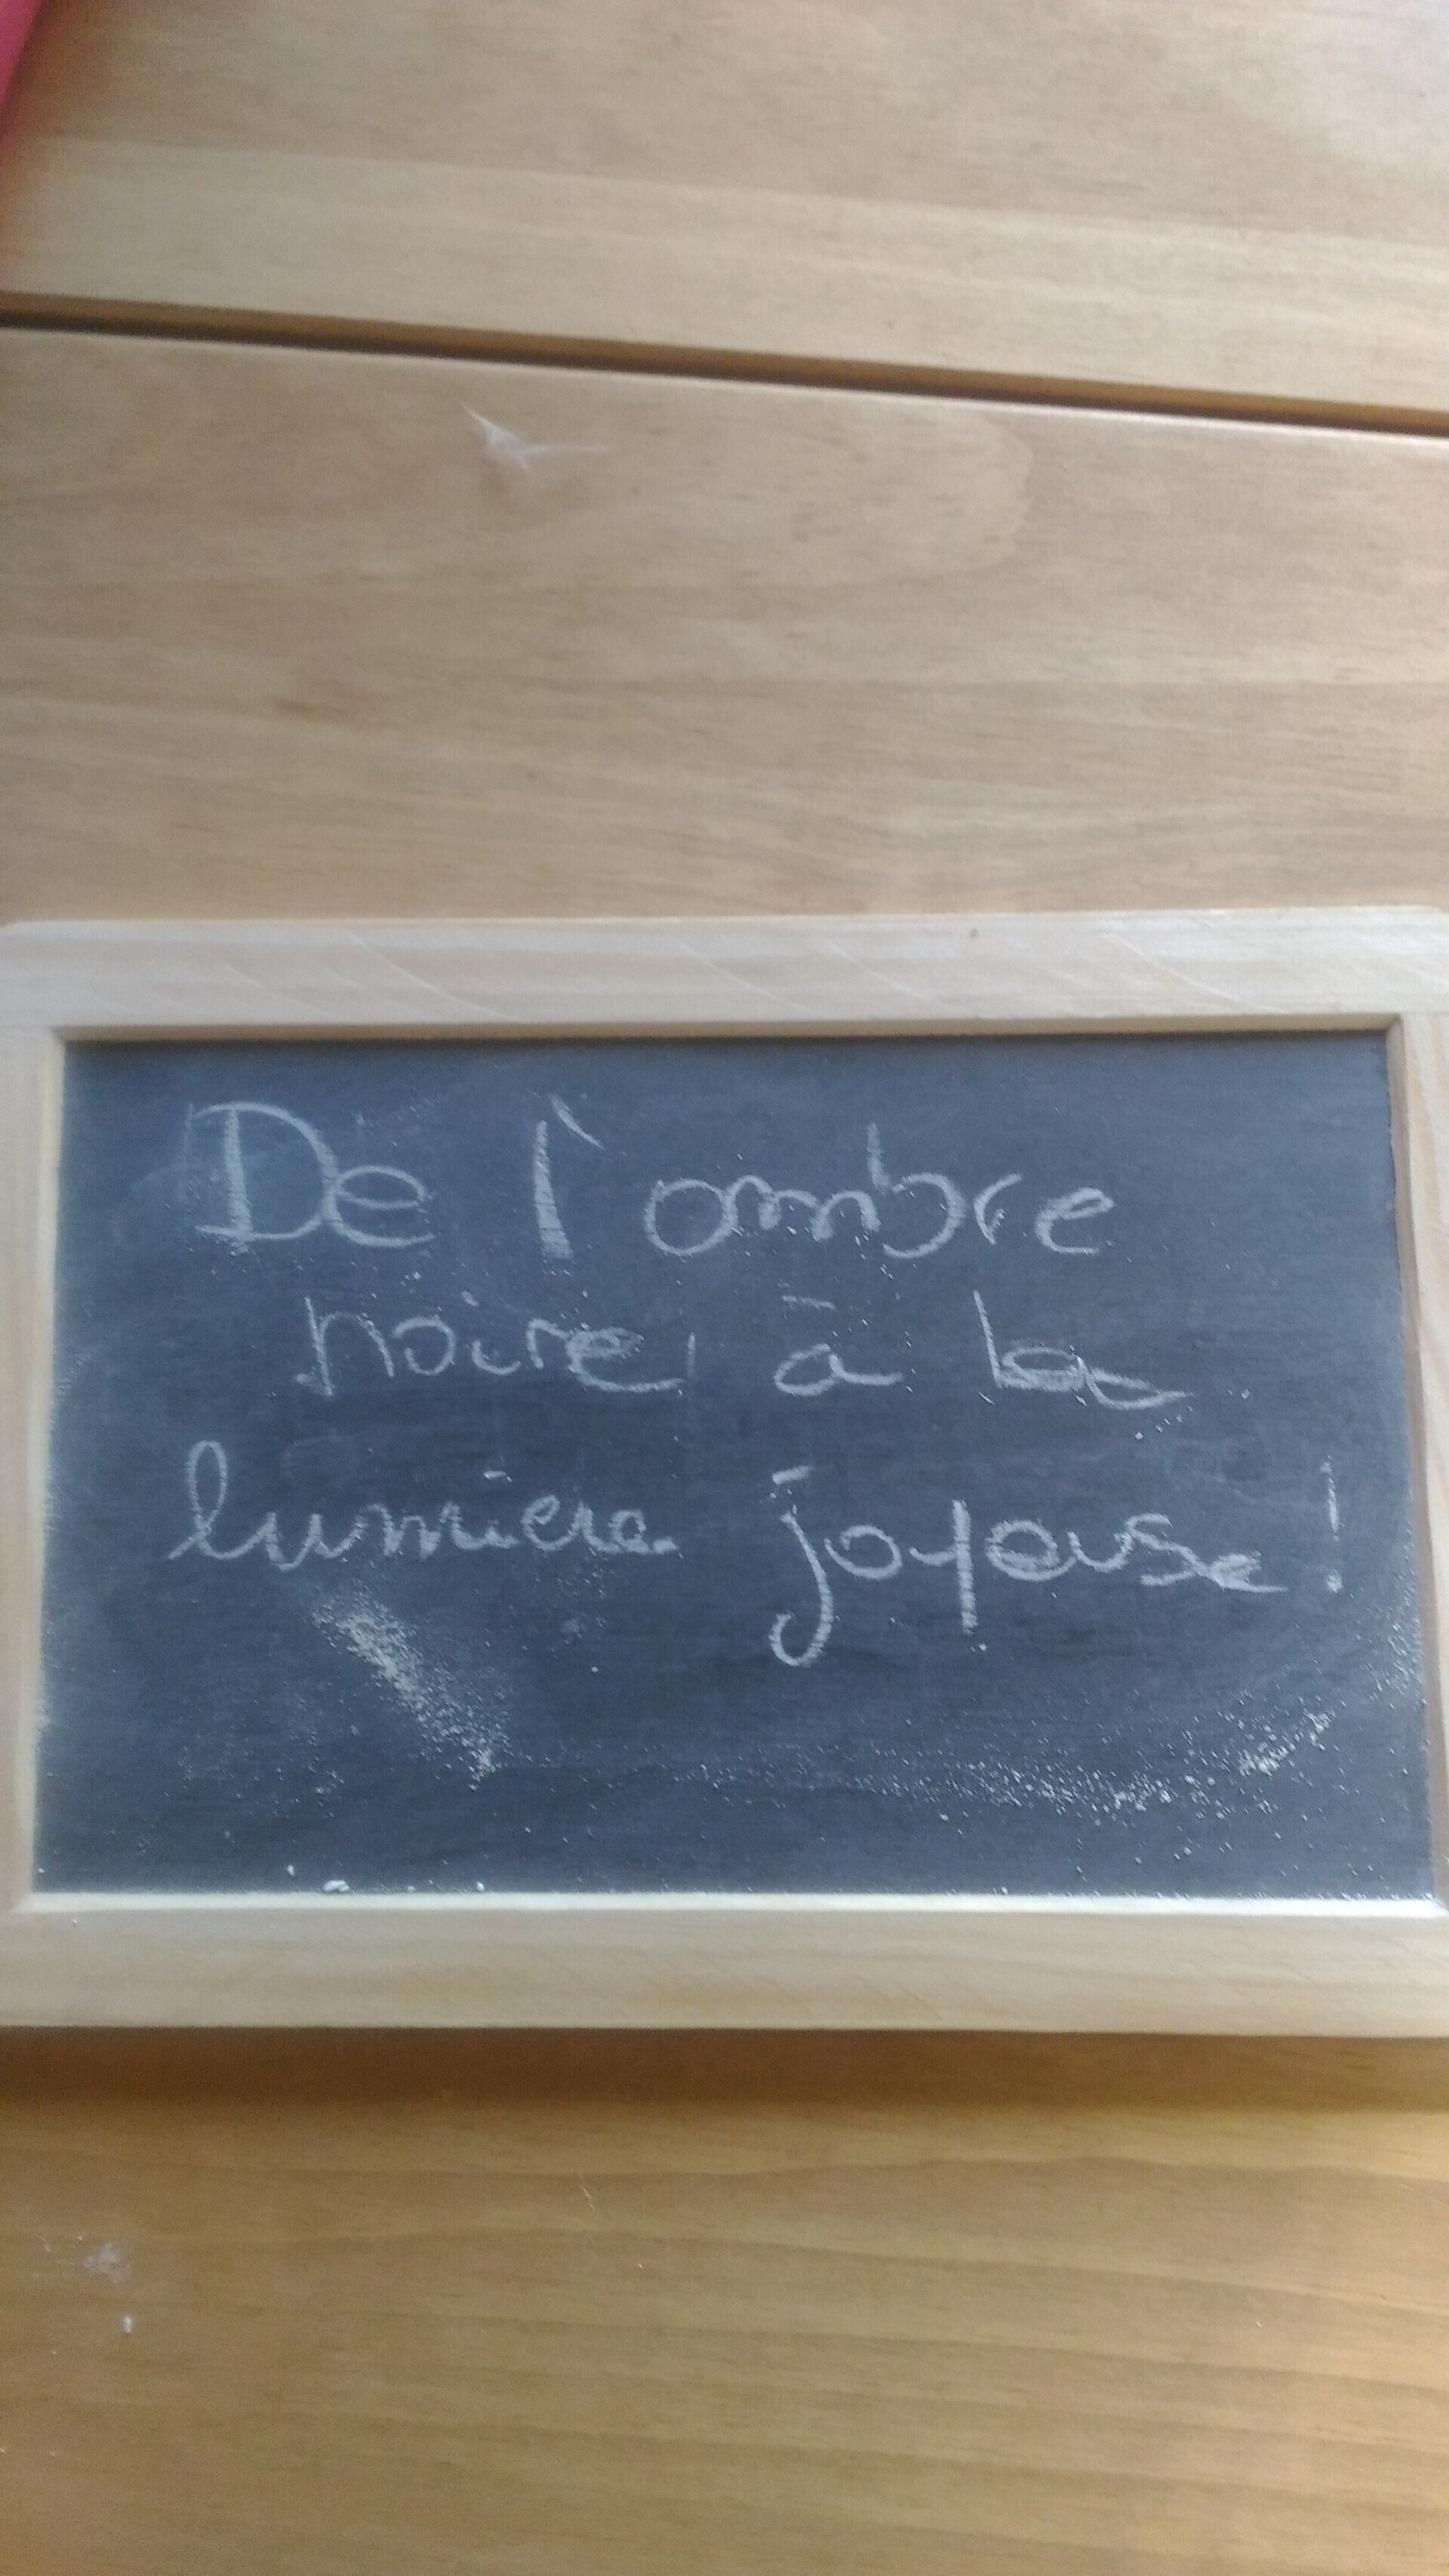 De l'ombre
noire, à la
lumière joyeuse !